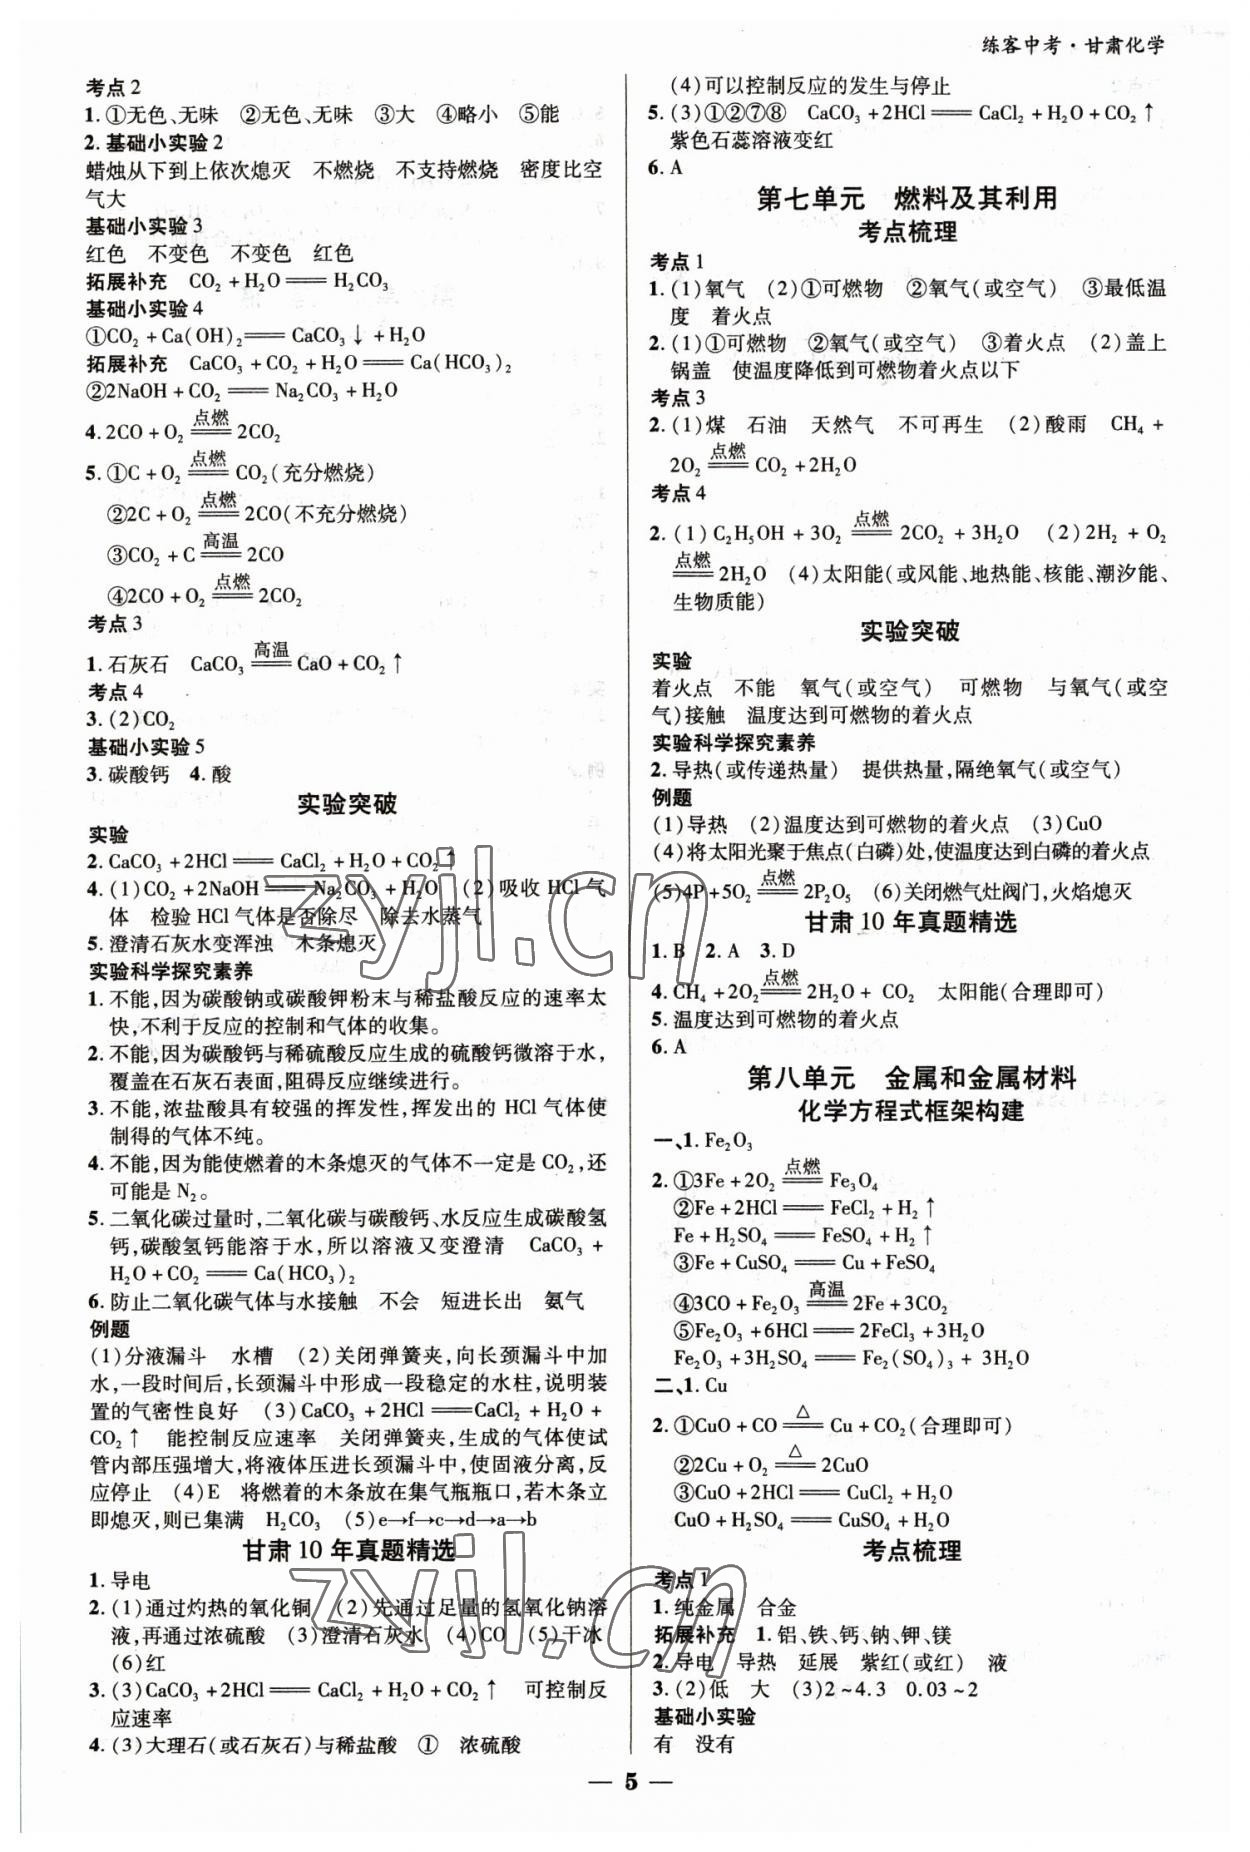 练客中考·甘肃化学
考点2
1. ①无色、无味 ②无色、无味 ③大 ④略小 ⑤能
2. 基础小实验2
蜡烛从下到上依次熄灭 不燃烧 不支持燃烧 密度比空
气大
基础小实验3
红色 不变色 不变色 红色
拓展补充 CO₂+H₂O══H₂CO₃
基础小实验4
①CO₂+Ca(OH)₂══CaCO₃↓+H₂O
拓展补充 CaCO₃+CO₂+H₂O══Ca(HCO₃)₂
②2NaOH+CO₂══Na₂CO₃+H₂O
4. 2CO+O₂ 点燃══ 2CO₂
5. ①C+O₂ 点燃══ CO₂(充分燃烧)
②2C+O₂ 点燃══ 2CO(不充分燃烧)
③CO₂+C 高温══ 2CO
④2CO+O₂ 点燃══ 2CO₂
考点3
1. 石灰石 CaCO₃ 高温══ CaO+CO₂↑
考点4
3. (2)CO₂
基础小实验5
3. 碳酸钙 4. 酸
实验突破
实验
2. CaCO₃+2HCl══CaCl₂+H₂O+CO₂↑
4. (1)CO₂+2NaOH══Na₂CO₃+H₂O (2)吸收HCl气
体 检验HCl气体是否除尽 除去水蒸气
5. 澄清石灰水变浑浊 木条熄灭
实验科学探究素养
1. 不能,因为碳酸钠或碳酸钾粉末与稀盐酸反应的速率太
快,不利于反应的控制和气体的收集。
2. 不能,因为碳酸钙与稀硫酸反应生成的硫酸钙微溶于水,
覆盖在石灰石表面,阻碍反应继续进行。
3. 不能,浓盐酸具有较强的挥发性,挥发出的HCl气体使
制得的气体不纯。
4. 不能,因为能使燃着的木条熄灭的气体不一定是CO₂,还
可能是N₂。
5. 二氧化碳过量时,二氧化碳与碳酸钙、水反应生成碳酸氢
钙,碳酸氢钙能溶于水,所以溶液又变澄清 CaCO₃+
H₂O+CO₂══Ca(HCO₃)₂
6. 防止二氧化碳气体与水接触 不会 短进长出 氨气
例题
(1)分液漏斗 水槽 (2)关闭弹簧夹,向长颈漏斗中加
水,一段时间后,长颈漏斗中形成一段稳定的水柱,说明装
置的气密性良好 (3)CaCO₃+2HCl══CaCl₂+H₂O+
CO₂↑ 能控制反应速率 关闭弹簧夹,生成的气体使试
管内部压强增大,将液体压进长颈漏斗中,使固液分离,反
应停止 (4)E 将燃着的木条放在集气瓶瓶口,若木条立
即熄灭,则已集满 H₂CO₃ (5)e→f→c→d→a→b
甘肃10年真题精选
1. 导电
2. (1)通过灼热的氧化铜 (2)先通过足量的氢氧化钠溶
液,再通过浓硫酸 (3)澄清石灰水 (4)CO (5)干冰
(6)红
3. (3)CaCO₃+2HCl══CaCl₂+H₂O+CO₂↑ 可控制反
应速率
4. (3)大理石(或石灰石)与稀盐酸 ① 浓硫酸
(4)可以控制反应的发生与停止
5. (3)①②⑦⑧ CaCO₃+2HCl══CaCl₂+H₂O+CO₂↑
紫色石蕊溶液变红
6. A
第七单元 燃料及其利用
考点梳理
考点1
1. (1)氧气 (2)①可燃物 ②氧气(或空气) ③最低温
度 着火点
2. (1)①可燃物 ②氧气(或空气) ③着火点 (2)盖上
锅盖 使温度降低到可燃物着火点以下
考点3
2. (1)煤 石油 天然气 不可再生 (2)酸雨 CH₄+
2O₂ 点燃══ CO₂+2H₂O
考点4
2. (1)C₂H₅OH+3O₂ 点燃══ 2CO₂+3H₂O (2)2H₂+O₂
点燃══ 2H₂O (4)太阳能(或风能、地热能、核能、潮汐能、
生物质能)
实验突破
实验
着火点 不能 氧气(或空气) 可燃物 与氧气(或空
气)接触 温度达到可燃物的着火点
实验科学探究素养
2. 导热(或传递热量) 提供热量,隔绝氧气(或空气)
例题
(1)导热 (2)温度达到可燃物的着火点 (3)CuO
(4)将太阳光聚于焦点(白磷)处,使温度达到白磷的着火点
(5)4P+5O₂ 点燃══ 2P₂O₅ (6)关闭燃气灶阀门,火焰熄灭
甘肃10年真题精选
1. B 2. A 3. D
4. CH₄+2O₂ 点燃══ 2H₂O+CO₂ 太阳能(合理即可)
5. 温度达到可燃物的着火点
6. A
第八单元 金属和金属材料
化学方程式框架构建
一、1. Fe₂O₃
2. ①3Fe+2O₂ 点燃══ Fe₃O₄
②Fe+2HCl══FeCl₂+H₂↑
Fe+H₂SO₄══FeSO₄+H₂↑
③Fe+CuSO₄══Cu+FeSO₄
④3CO+Fe₂O₃ 高温══ 2Fe+3CO₂
⑤Fe₂O₃+6HCl══2FeCl₃+3H₂O
Fe₂O₃+3H₂SO₄══Fe₂(SO₄)₃+3H₂O
二、1. Cu
2. ①CuO+CO △══ Cu+CO₂(合理即可)
②2Cu+O₂ △══ 2CuO
③CuO+2HCl══CuCl₂+H₂O
CuO+H₂SO₄══CuSO₄+H₂O
考点梳理
考点1
1. 纯金属 合金
拓展补充 1. 铝、铁、钙、钠、钾、镁
2. 导电 导热 延展 紫红(或红) 液
3. (2)低 大 (3)2~4.3 0.03~2
基础小实验
有 没有
— 5 —
zyjl.cn
zyjl.cn